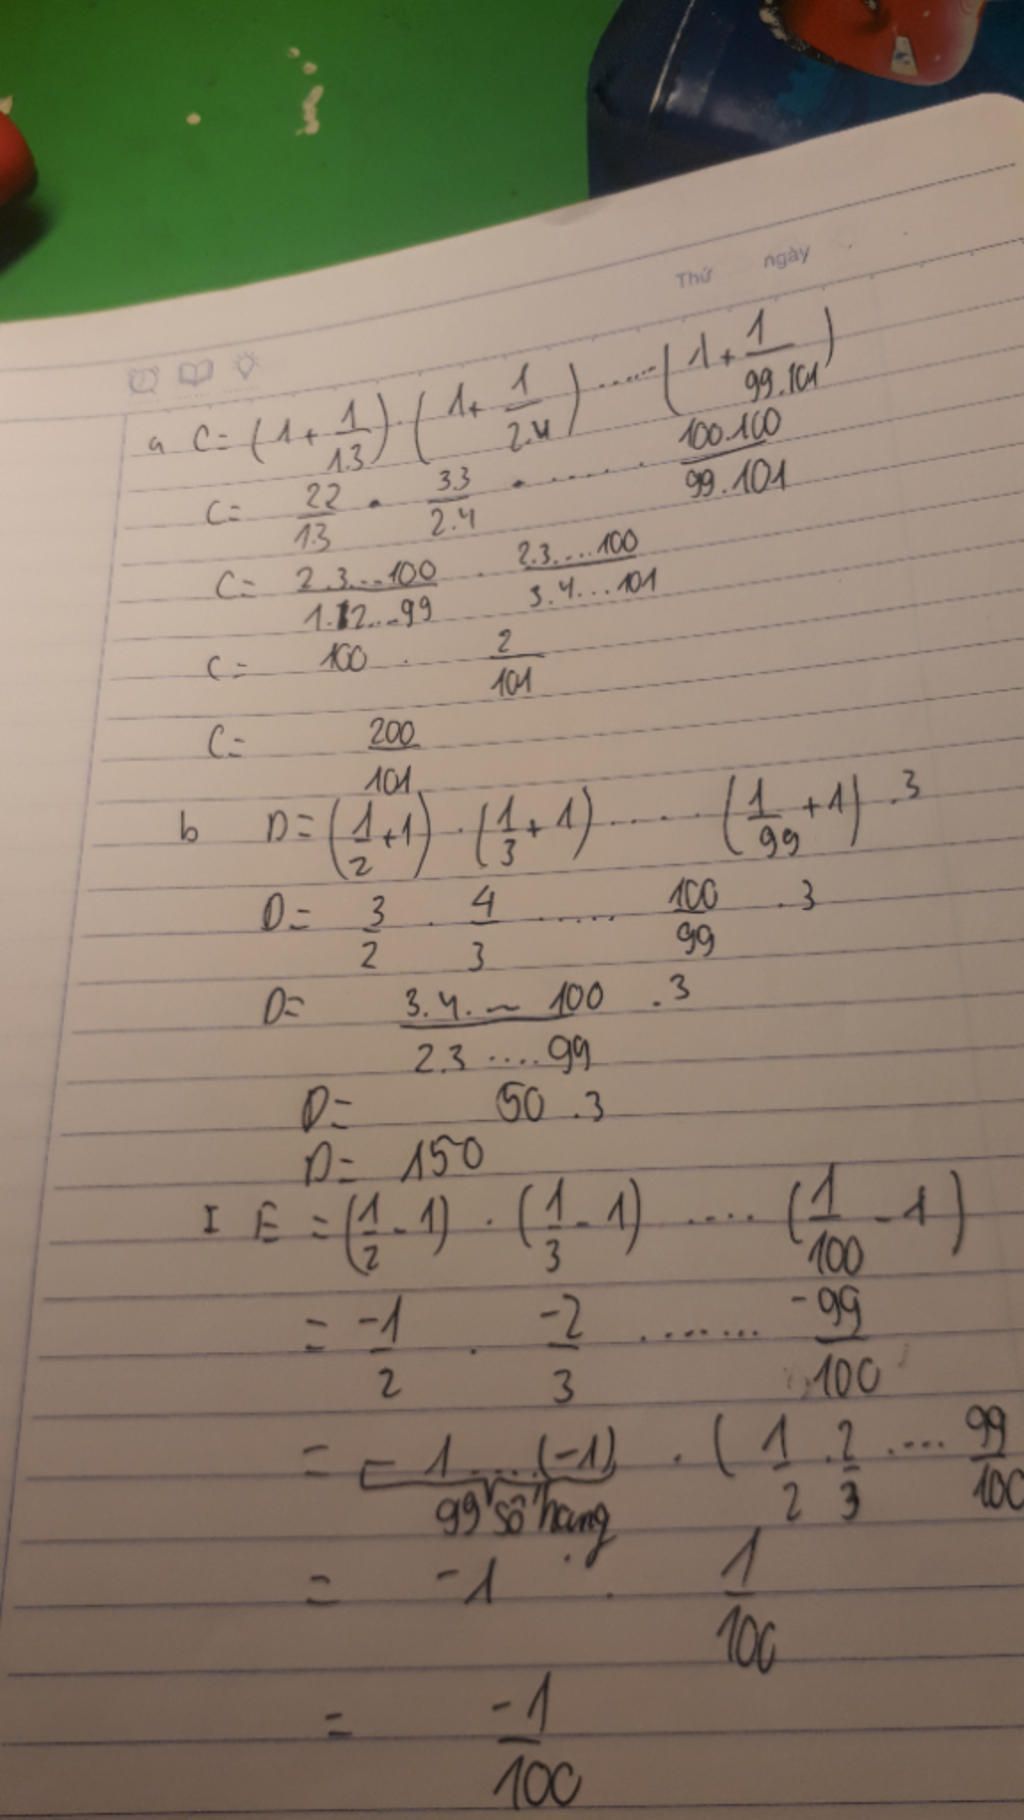 Thứ ngày
a C = (1 + 1/1.3) . (1 + 1/2.4) ...... (1 + 1/99.101)
C = 22/1.3 . 33/2.4 . ...... . 100.100/99.101
C = 2.3...100/1.2...99 . 2.3....100/3.4...101
C = 100 . 2/101
C = 200/101
b D = (1/2 + 1) . (1/3 + 1) ...... (1/99 + 1) .3
D = 3/2 . 4/3 ...... 100/99 .3
D = 3.4. ~ 100/2.3 ....99 .3
D = 50 .3
D = 150
I E = (1/2 - 1) . (1/3 - 1) .... (1/100 - 1)
= -1/2 . -2/3 ........ -99/100
= -1....(-1) . (1/2 . 2/3 .... 99/100
99 số hạng
= -1 . 1/100
= -1/100